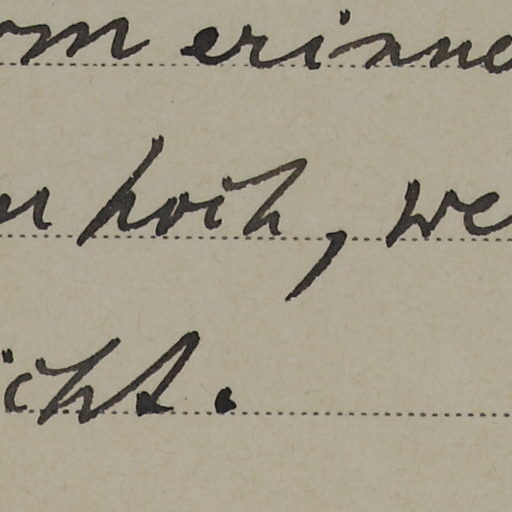 om erinne
n hoch, we
icht.